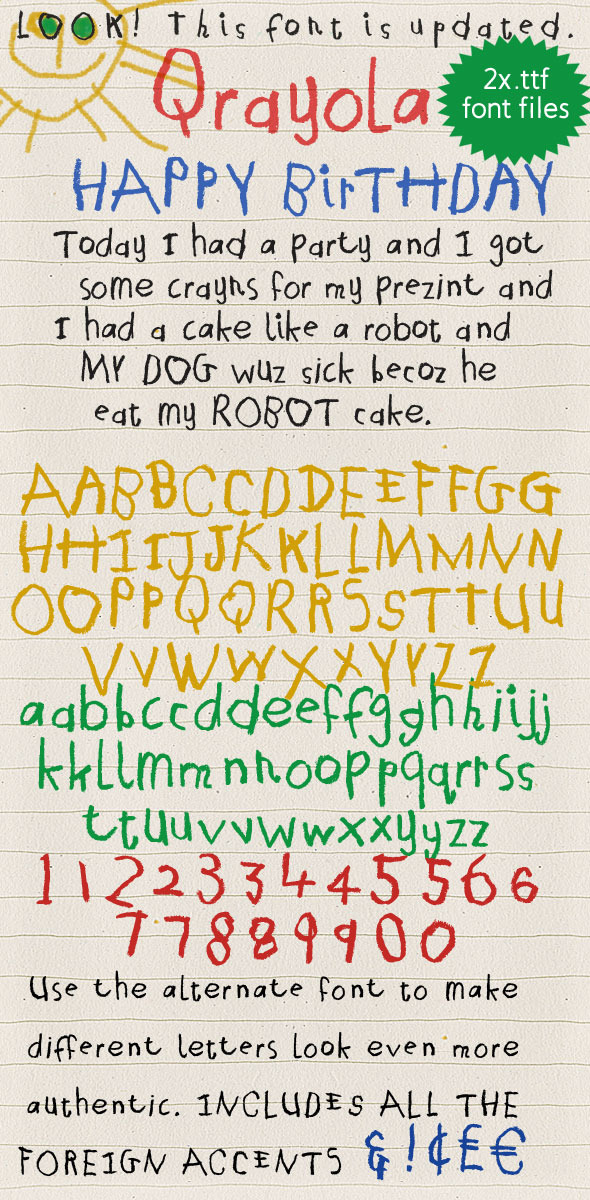 LOOK! This font is updated.
Qrayola
2x.ttf
font files
HAPPY BirTHDAY
Today I had a party and I got
some crayns for my prezint and
I had a cake like a robot and
MY DOG wuz sick becoz he
eat my ROBOT cake.
AABBCCDDEEFFGG
HHIIJJKKLLMMNN
OOPPQQRRSSTTUU
VVWWXXYYZZ
aabbccddeeffgghhiijj
kkllmmnnooppqqrrss
ttuuvvwwxxyyzz
11223344556 6
77889900
Use the alternate font to make
different letters look even more
authentic. INCLUDES ALL THE
FOREIGN ACCENTS &!¢£€